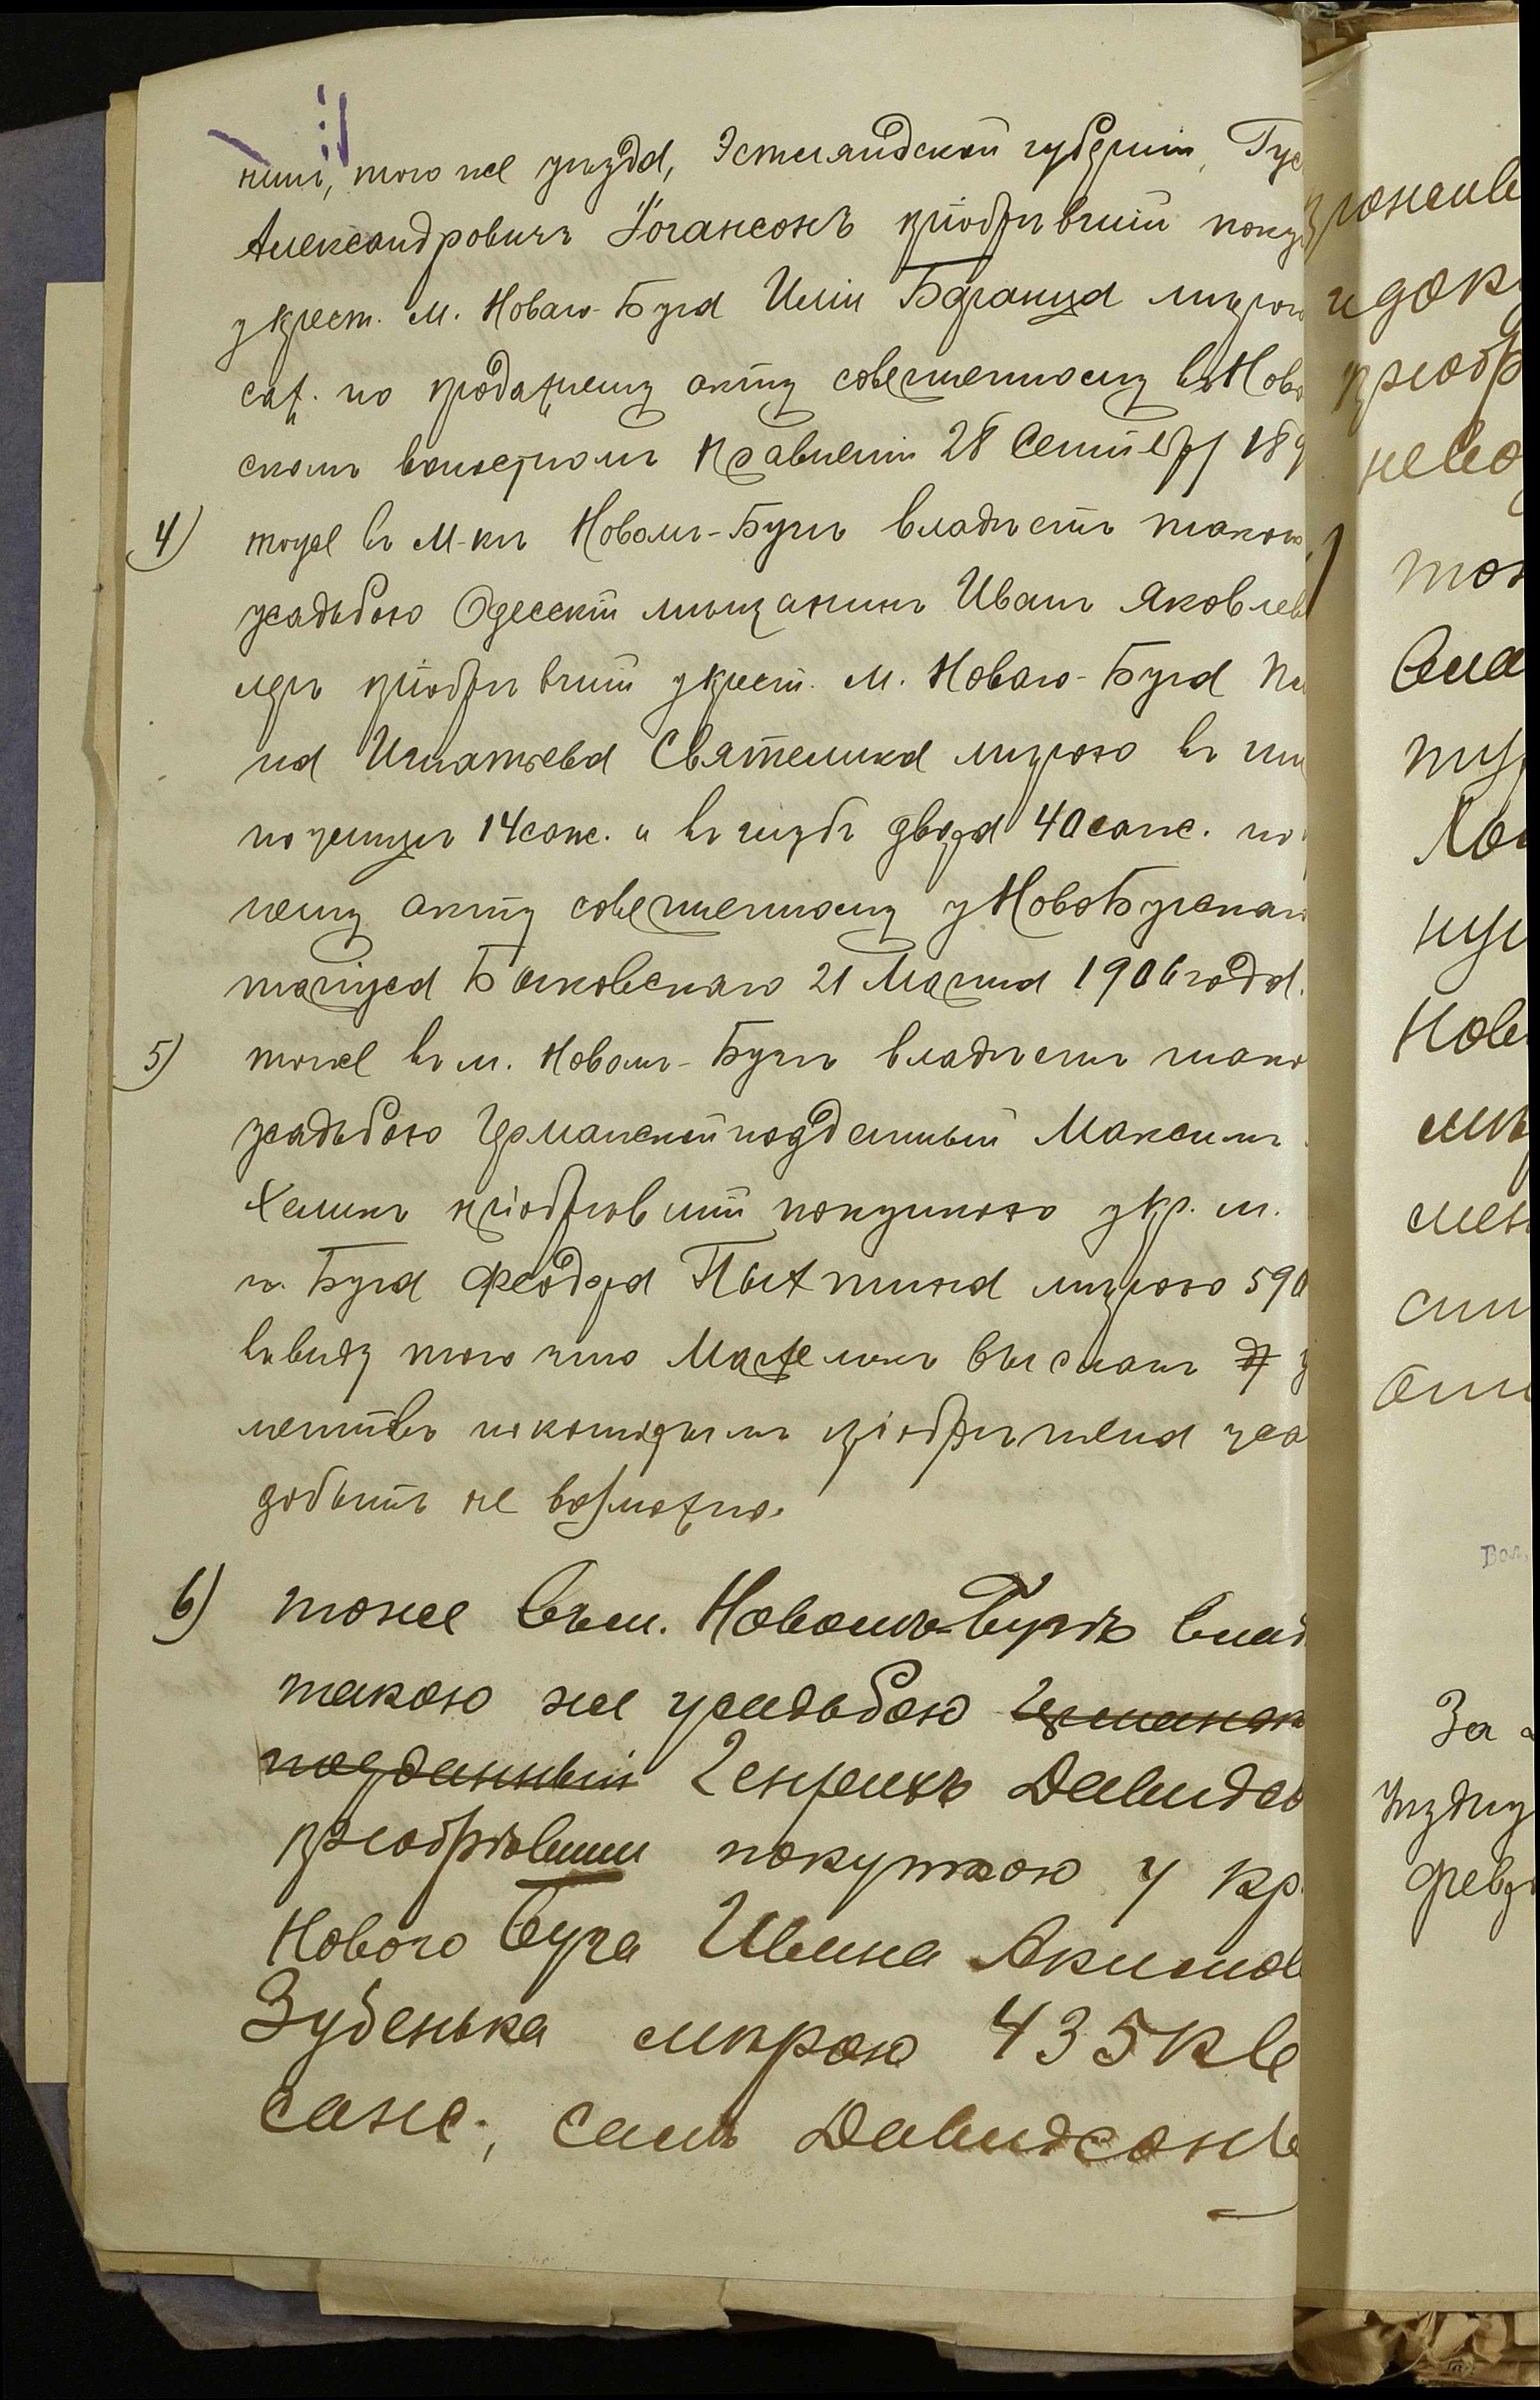 того же уѣзда, Эстляндской губерніи, Гус
Александровичъ Іогансонъ пріобрѣвшій поку
у крест. м. Новаго-Буга Иліи мѣрою
саж. по продажному акту совершенному въ Ново
скомъ волостномъ Правленіи 28 Сентября 189
4) тоже въ м-кѣ Новомъ-Бугѣ владѣетъ такою
усадьбою Одесскій мѣщанинъ Иванъ Яковлев
леръ пріобрѣвшій у крест. м. Новаго-Буга
Игнатьева Святелика мѣрою въ ши
по улицѣ 14 саж. и въ глубь двора 40 саж. по
ному акту совершенному у Ново Бугскаго
таріуса 21 Марта 1906 года.
5) тоже въ м. Новомъ-Бугѣ владѣетъ тако
усадьбою Германской подданный Максимъ
пріобрѣвшій покупкою у кр. м.
н. Буга Феодора мѣрою 590
въ виду того что высланъ
пріобрѣтена уса
добыть не возможно.
6) тоже въ м. Новомъ-Бугѣ влад
такою же усадьбою Германск
подданный Генрихъ Давидсо
пріобрѣвшій покупкою у кр.
Нового Буга Ивана Акимов
Зубенька мѣрою 435 кв
саж., самъ Давидсонъ
пріобр
нево
тож
вла
Нов
мѣ
За